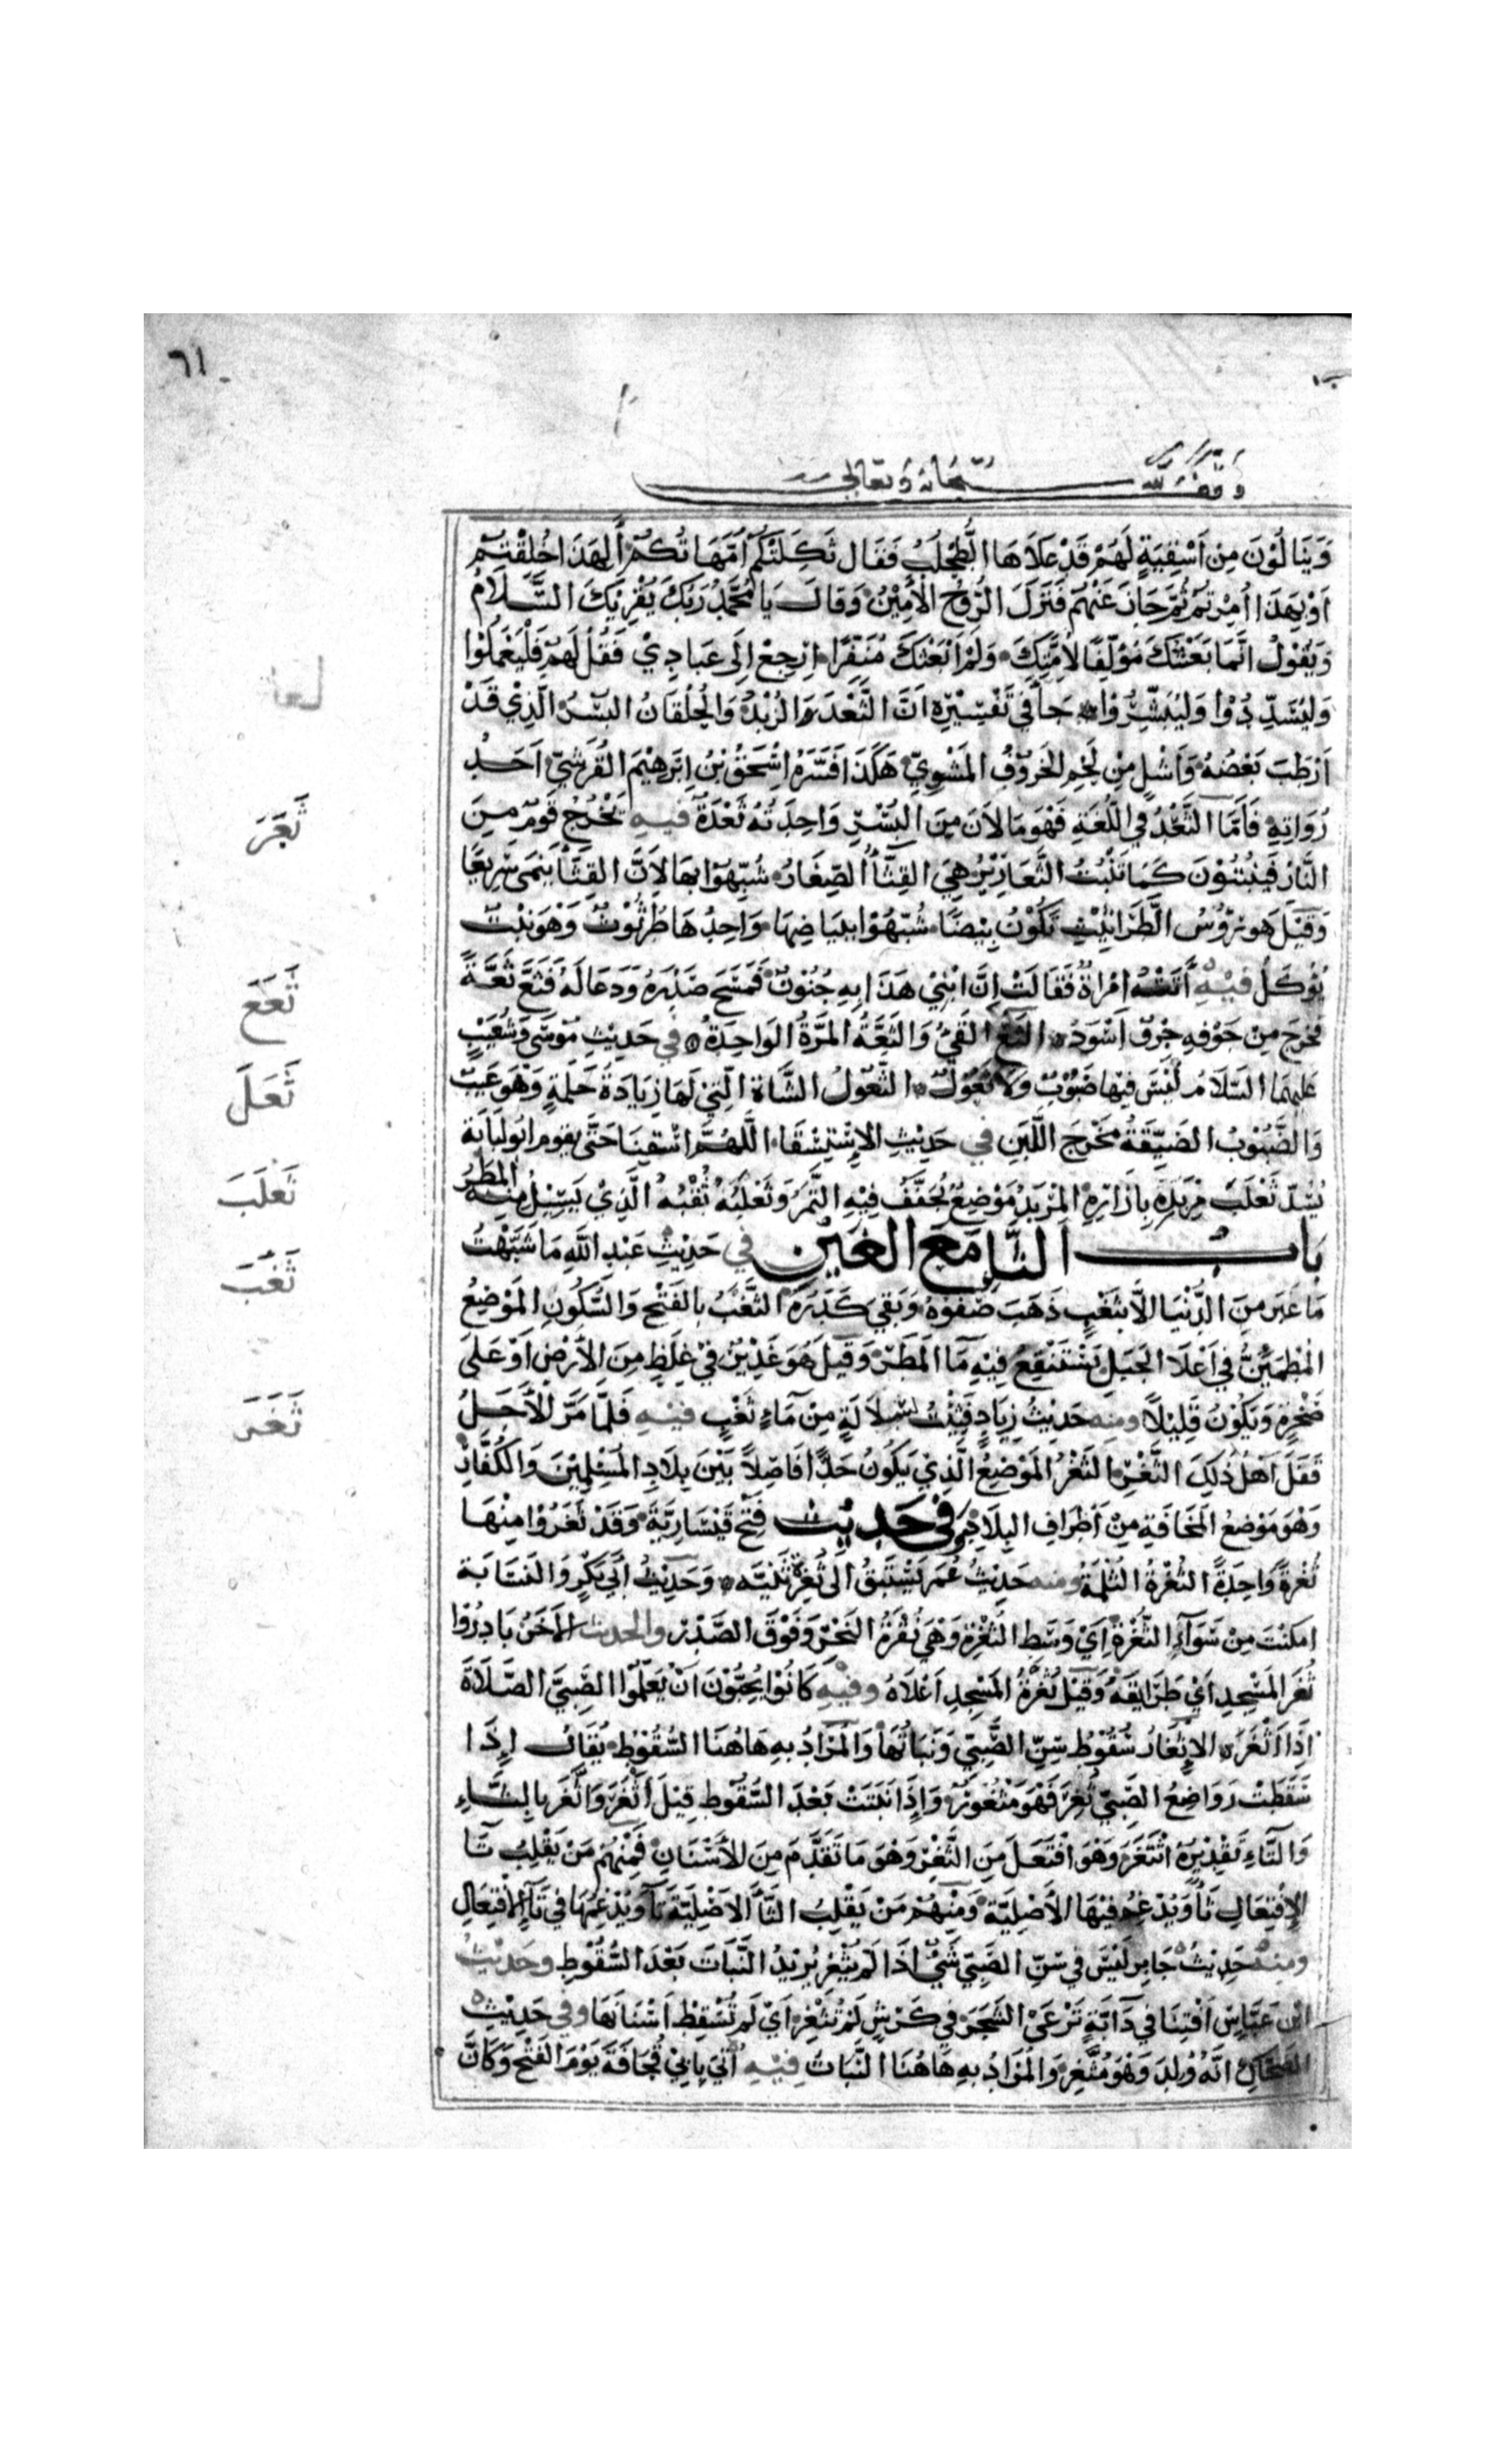 ٦١
وقف لله سبحانه وتعالى
وَيَنَالُوْنَ مِن اَسْقِيَةٍ لَهُمْ قَدْ عَلَاهَا الطُّحْلُبُ فَقَال ثَكِلَتْكُم اُمَّهَاتُكُمْ أَلِهَذَا خُلِقْتُمْ
اَوْبِهَذَا اُمِرْتُمْ ثُمَّ جَازَ عَنْهُم فَنَزَلَ الرُّوْحُ الأَمِيْنُ وَقَالَ يَا مُحَمَّدُ رَبُّكَ يُقْرِيكَ السَّلَامُ
وَيَقُوْلُ اِنَّمَا بَعَثْتُكَ مُؤلِّفًا لِأُمَّتِكَ وَلَمْ اَبْعَثْكَ مُنَفِّرًا اِرْجِعْ اِلَى عِبَادِيْ فَقُلْ لَهُمْ فَلْيَعْمَلُوْا
وَلْيُسَدِّدُوْا وَلْيُبَشِّرُوْا جَاءَ فِي تَفْسِيْرِهِ اَنَّ الثَّعْدَ الزُّبْدُ وَالْحُلْقَانُ البُسْرُ الَّذِيْ قَدْ
اَرْطَبَ بَعْضُهُ وَاَشْلٍ مِنْ لَحْمِ الخَرُوْفُ المَشْوِيّ هَكَذَا فَسَّرَهُ اِسْحٰقُ بْنُ اِبْرَهِيْمَ القُرَشِيّ اَحَدُ
رُوَاتِهِ فَاَمَّا الثَّعْدُ فِي اللُّغَةِ فَهُوَ مَا لَانَ مِنَ البُسْرِ وَاحِدَتُهُ ثَعْدَةٌ فيهِ يَخْرُجُ قَوْمٌ مِنَ
النَّارِ فَيَنْبُتُوْنَ كَمَا تَنْبُتُ الثَّعَارِيْرُ هِيَ القِثَّاءُ الصِّغَارُ شُبِّهُوْا بِهَا لِاَنَّ القِثَّاءَ يَنْمَى سَرِيعًا
وَقِيْلَ هُوَ رُؤُسُ الطَّرَاثِيْثِ تَكُوْنُ بِيْضًا شُبِّهُوْا بِبَيَاضِهَا وَاحِدُهَا طُرْثُوْثٌ وَهُوَ نَبْتٌ
يُؤْكَلُ فِيْهِ أَتَتْهُ امْرَاَةٌ فَقَالَتْ اِنَّ ابْنِيْ هَذَا بِهِ جُنُوْنٌ فَمَسَحَ صَدْرَهُ وَدَعَا لَهُ فَثَعَّ ثَعَّةً
فَخَرَجَ مِنْ جَوْفِهِ جِرْوٌ اَسْوَدُ الثَّعُّ القَيْءُ وَالثَّعَّةُ المَرَّةُ الوَاحِدَةُ فِي حَدِيْثِ مُوْسَى وَشُعَيْبٍ
عَلَيهِمَا السَّلَامُ لَيْسَ فِيْهَا ضَبُوْبٌ وَلَا ثَعُوْلٌ الثَّعُوْلُ الشَّاةُ الَّتِيْ لَهَا زِيَادَةُ حَلَمَةٍ وَهُوَ عَيْبٌ
وَالضَّبُوْبُ الضَيِّقَةُ مَخْرَجِ اللَّبَنِ فِي حَدِيْثِ الاِسْتِسْقَا اللّٰهُمَّ اسْقِنَا حَتَّى يَقُومَ ابُو لُبَابَةَ
يَسُدّ ثَعْلَبَ مِرْبَدِهِ بِاِزَارِهِ المِرْبَدُ مَوْضِعٌ يُجَفَّفُ فِيْهِ التَّمْرُ وَثَعْلَبُهُ ثُقْبُهُ الَّذِيْ يَسِيْلُ مِنْهُ المَطَرُ
بابُ الثَّاءِ مَعَ الغَيْنِ فِي حَدِيْثِ عَبْدِ اللّٰهِ مَا شَبَّهْتُ
مَا غَبَرَ مِنَ الدُّنْيَا اِلَّا بِثَغْبٍ ذَهَبَ صَفْوُهُ وَبَقِيَ كَدَرُهُ الثَّغْبُ بِالفَتْحِ وَالسُّكُونِ المَوْضِعُ
المُطْمَئِنُّ فِي اَعْلَا الجَبَلِ يَسْتَنْقِعُ فِيْهِ مَاءُ المَطَرِ وَقِيْلَ هُوَ غَدِيْرٌ فِيْ غِلَظٍ مِنَ الأَرْضِ اَوْ عَلَى
صَخْرَةٍ وَيَكُوْنُ قَلِيْلًا ومنه حَدِيْثُ زِيَادٍ فُثِئْتُ بِسُلَالَةٍ مِنْ مَاءِ ثَغْبٍ فِيْهِ فَلَمَّا مَرَّ الأَجَلُ
قَفَلَ اَهْلُ ذٰلِكَ الثَّغْرِ الثَّغْرُ المَوْضِعُ الَّذِيْ يَكُوْنُ حَدًّا فَاصِلًا بَيْنَ بِلَادِ المُسْلِمِيْنَ وَالكُفَّارِ
وَهُوَ مَوْضِعُ المَخَافَةِ مِنْ اَطْرَافِ البِلَادِ وَفي حَدِيْثِ فَتْحِ قَيْسَارِيَّةَ وَقَدْ ثَغَرُوْا مِنْهَا
ثُغْرَةً وَاحِدَةً الثُّغْرَةُ الثُّلْمَةُ ومنه حَدِيْثُ عُمَرَ تَسْتَبِقُ اِلَى ثُغْرَةِ ثَنِيَّه وَحَدِيْثُ أَبِيْ بَكْرٍ وَالنَسَّابَة
اَمكَنْتَ مِنْ سَوَآءِ الثُّغْرَةِ اَيْ وَسَطِ الثُّغْرَةِ وَهْيَ نُقْرَةُ النَحْرِ وَفَوْقَ الصَّدْرِ والحديث الآخَرُ بَادِرُوْا
ثُغَرَ المَسْجِدِ اَيْ طَرَايِقَهُ وَقِيْلَ ثُغْرَةُ المَسْجِدِ اَعْلَاهُ وفيْهِ كَانُوْا يُحِبُّوْنَ اَنْ يُعَلِّمُوا الصَّبِيَّ الصَّلَاةَ
اِذَا اَثْغَرَ الاِثِّغَارُ سُقُوْطُ سِنِّ الصَّبِيّ وَنَبَاتُهَا وَالمُرَادُ بِهِ هَاهُنَا السُّقُوْطُ يُقَالُ اِذَا
سَقَطَتْ رَوَاضِعُ الصَّبِيّ ثُغِرَ فَهُوَ مَثْغُوْرٌ وَاِذَا نَبَتَتْ بَعْدَ السُّقُوْطِ قِيْلَ اَثَّغَرَ وَاتَّغَرَ بِالثَّاءِ
وَالتَّاءِ تَقْدِيْرُهُ اثْتَغَرَ وَهُوَ افْتَعَلَ مِنَ الثَّغْرِ وَهُوَ مَا تَقَدَّمَ مِنَ الأَسْنَانِ فَمِنْهُم مَنْ يَقْلِبُ تَا
الاِفْتِعَالِ ثَاءً وَيُدْغِمُ فِيْهَا الأَصْلِيَّةَ وَمِنْهُمْ مَنْ يَقْلِبُ الثَّاءَ الأَصْلِيَّةَ تَآءً وَيُدْغِمُهَا فِي تَآءِ الاِفْتِعَالِ
ومنهُ حَدِيْثُ جَابِرٍ لَيْسَ فِي سِنِّ الصَّبِيّ شَيْءٌ اِذَا لَمْ يَثَّغِرْ يُرِيْدُ النَّبَاتَ بَعْدَ السُّقُوْطِ وحَدِيْثُ
ابْن عَبَّاسٍ اَفْتِنَا فِي دَآبَّةٍ تَرْعَى الشَّجَرَ فِي كَرِشٍ لَمْ تَثَّغِرْ اَيْ لَمْ تُسْقِطْ اَسْنَانَهَا وفِي حَدِيْثِ
الضَّحَّاكِ انَّهُ وُلِدَ وَهُوَ مُثَّغِرٌ وَالمُرَادُ بِهِ هَاهُنَا النَّبَاتُ فِيْهِ اُتِيَ بِأَبِيْ قُحَافَةَ يَوْمَ الفَتْحِ وَكَانَّ
ثَعَرَ
ثَعَعَ
ثَعَلَ
ثَعلَبَ
ثَغَبَ
ثَغَرَ